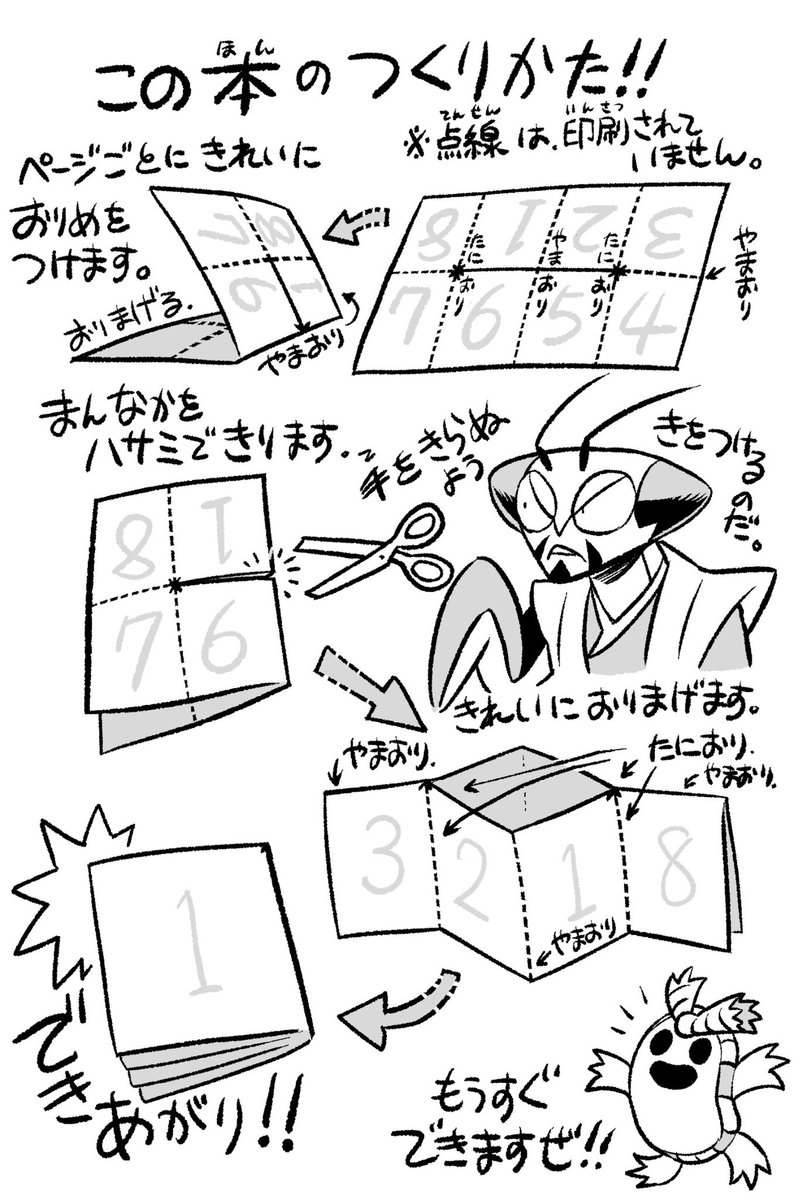 この本のつくりかた!!
ほん
※点線は、印刷されて
いません。
てんせん
いんさつ
ページごとにきれいに
おりめを
つけます。
おりまげる.
やまおり
8 1 2 3
7 6 5 4
たにおり
やまおり
たにおり
やまおり
8 1
7 6
まんなかを
ハサミできります.
手をきらぬ
よう
きをつける
のだ。
8 1
7 6
きれいにおりまげます。
やまおり.
たにおり.
やまおり.
3 2 1 8
やまおり
1
できあがり!!
もうすぐ
できますぜ!!